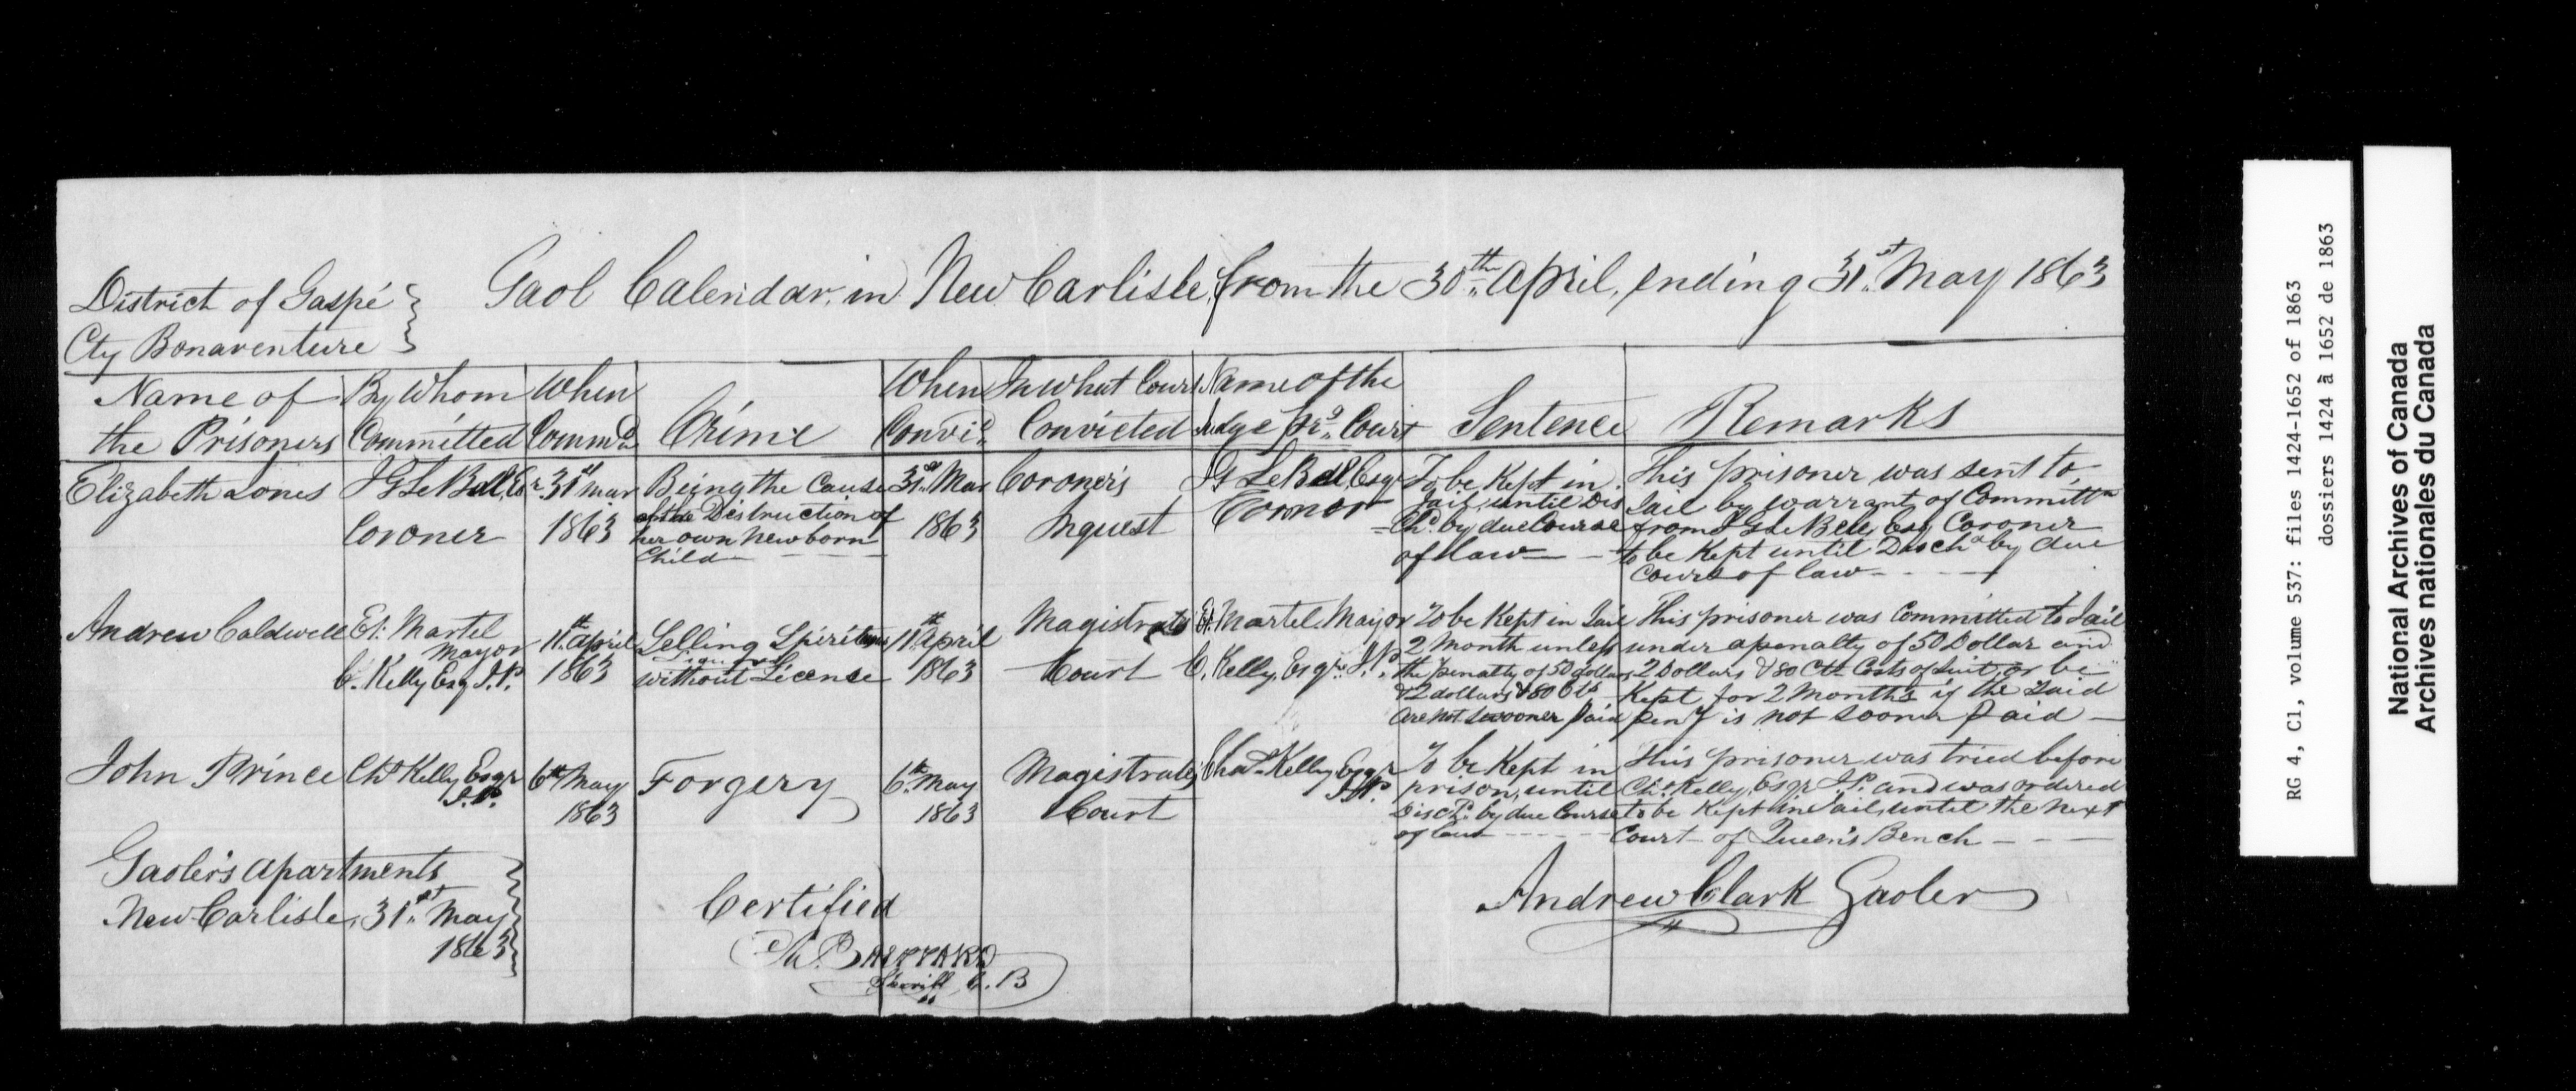 District of Gaspé
Cty Bonaventure
Gaol Calendar in New Carlisle, from the 30th April, ending 31st May 1863
Name of the Prisoners
By Whom Committed
When Commd
Crime
When Convicd
In what Court Convicted
Name of the Judge Court
Sentence
Remarks
Elizabeth Jones
J G Le Bell, Er
Coroner
31st mar
1863
Being the Cause
of the Distruction of
her own new born
Child
31st Mar
1863
Coroner's
Inquest
J G Le Bell, Esqr
Coronor
To be Kept in
Jail, until Dis
Chd by due Course
of law
This prisoner was sent to
Jail by warrant of Committn
from J G Le Bell, Esq Coroner
to be Kept until Disch by due
Course of law
Andrew Caldwell
Et. Martel
Mayor
C. Kelly Esq J.P.
11th april
1863
Selling Spiritous
Liquor
without License
11th April
1863
Magistrates
Court
Et. Martel Mayor
C. Kelly, Esqr. J.P.
To be Kept in Jail
2 Month unless
the penalty of 50 dollars
& 2 dollars & 80 Cts
are not sooner paid
This prisoner was Committed to Jail
under a penalty of 50 Dollar and
2 Dollars & 80 Cts Costs of suit, or be
Kept for 2 Months if the said
peny is not sooner paid
John Prince
Chs Kelly Esqr
J.P.
6th May
1863
Forgery
6th May
1863
Magistrates
Court
Chas Kelly, Esqr
J.P.
To be Kept in
prison, until
Disch by due Course
of law
This prisoner was tried before
Chs Kelly, Esqr J.P. and was ordered
to be Kept in Jail, until the next
Court of Queen's Bench
Gaoler's apartments
New Carlisle, 31st May
1863
Certified
Sheriff C.B
Andrew Clark Gaoler
RG 4, C1, volume 537: files 1424-1652 of 1863
dossiers 1424 à 1652 de 1863
National Archives of Canada
Archives nationales du Canada